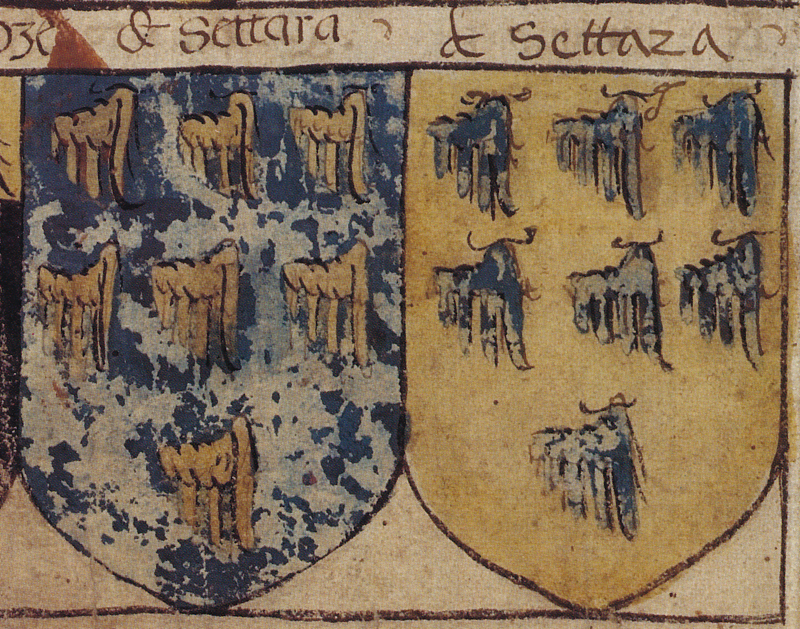 de Settara de Settaza